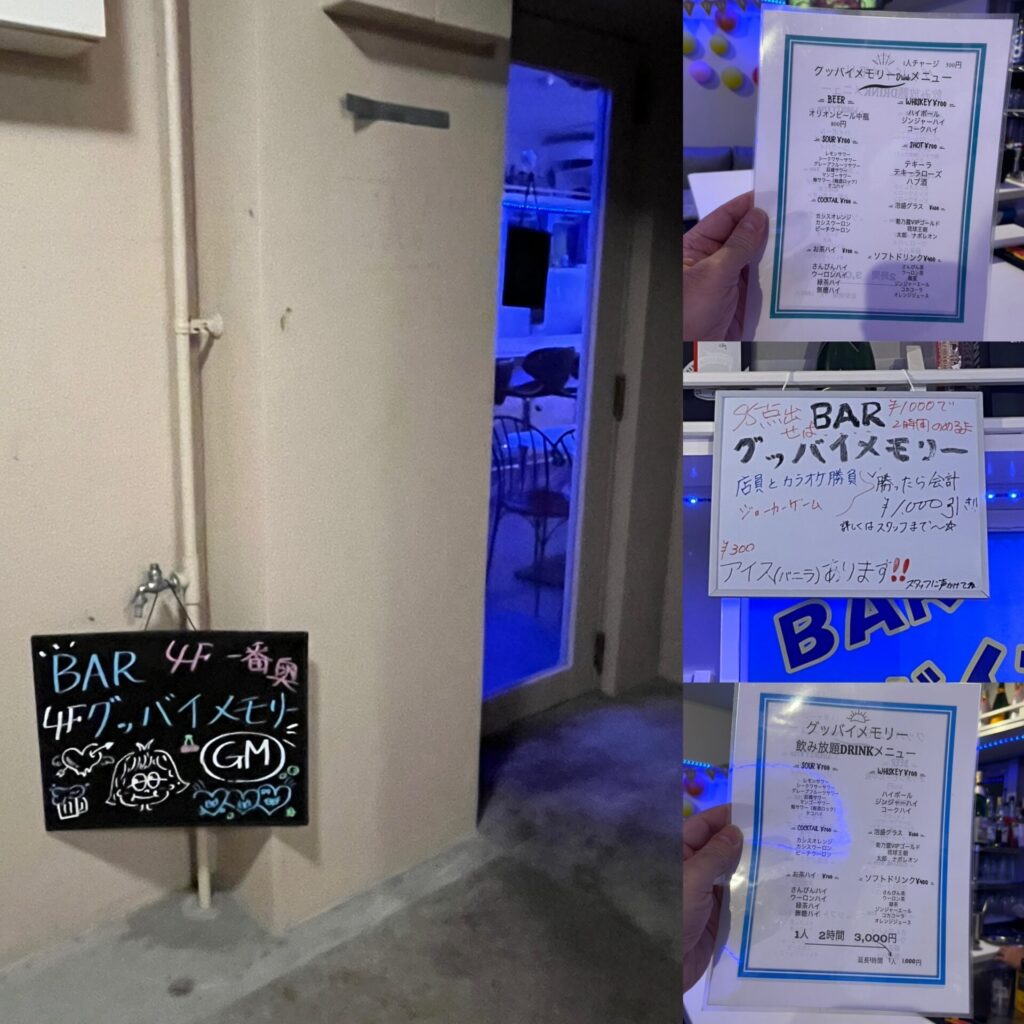 BAR 4F 一番奥
4Fグッバイメモリー
GM
1人チャージ 500円
グッバイメモリーDrinkメニュー
BEER
オリオンビール中瓶
800円
SOUR ¥700
レモンサワー
シークワサーサワー
グレープフルーツサワー
巨峰サワー
マンゴーサワー
梅サワー(梅酒ロック)
タコハイ
COCKTAIL ¥700
カシスオレンジ
カシスウーロン
ピーチウーロン
お茶ハイ ¥700
さんぴんハイ
ウーロンハイ
緑茶ハイ
無糖ハイ
WHISKEY ¥700
ハイボール
ジンジャーハイ
コークハイ
SHOT ¥700
テキーラ
テキーラローズ
ハブ酒
泡盛グラス
菊乃露VIPゴールド
琉球王朝
太郎 ナポレオン
ソフトドリンク¥400
さんぴん茶
ウーロン茶
緑茶
ジンジャーエール
コカコーラ
オレンジジュース
95点出せば BAR ¥1000で2時間のめるよ
グッバイメモリー
店員とカラオケ勝負
ジョーカーゲーム
勝ったら会計
¥1,000引き!!
詳しくはスタッフまで〜☆
¥300
アイス(バニラ)あります!!
スタッフに声かけてね
BAR
グッバイメモリー
飲み放題DRINKメニュー
SOUR ¥700
レモンサワー
シークワサーサワー
グレープフルーツサワー
巨峰サワー
マンゴーサワー
梅サワー(梅酒ロック)
タコハイ
COCKTAIL ¥700
カシスオレンジ
カシスウーロン
ピーチウーロン
お茶ハイ ¥700
さんぴんハイ
ウーロンハイ
緑茶ハイ
無糖ハイ
WHISKEY ¥700
ハイボール
ジンジャーハイ
コークハイ
泡盛グラス
菊乃露VIPゴールド
琉球王朝
太郎 ナポレオン
ソフトドリンク¥400
さんぴん茶
ウーロン茶
緑茶
ジンジャーエール
コカコーラ
オレンジジュース
1人 2時間 3,000円
延長1時間 1人 1,000円